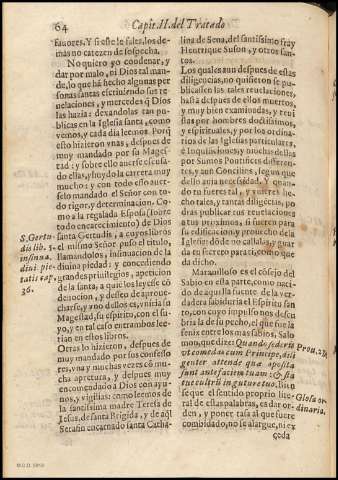 64
Capit. II. del Tratado
fauores. Y si este le falta, los de-
mas no carezen de sospecha.
No quiero yo condenar, y
dar por malo, ni Dios tal man-
de, lo que há hecho algunas per
sonas santas escriuiendo sus re-
uelaciones, y mercedes q̃ Dios
las hazia: dexandolas tan pu-
blicas en la Iglesia santa, como
vemos, y cada dia leemos. Porq̃
esto hizieron vnas, despues de
muy mandado por su Magestad:
y sobre ello auerse escusa-
do ellas, y huydo la carrera muy
mucho: y con todo esso auer-
selo mandado el Señor con to-
do rigor, y determinacion. Co-
mo a la regalada Esposa (sobre
todo encarecimiento) de Dios
santa Gertrudis, a cuyos libros
el mismo Señor puso el titulo,
llamandolos, insinuacion de la
diuina piedad: y concediendo
grandes priuilegios, a peticion
de la santa, a quie los leyesse có
deuocion, y desseo de aproue-
charse, y no del los es, viuiria su
Magestad, su espiritu, con el su-
yo, y en tal caso entrambos lee-
rian en estos libros.
Otras lo hizieron, despues de
muy mandado por sus confesso
res, vna y muchas vezes có mu-
cha apretura, y despues muy
encomendado a Dios con ayu-
nos, y vigilias: como leemos de
la santissima madre Teresa de
Iesus, de santa Brigida, y de aql̃
Serafin encarnado santa Catha-
S. Gertru
dis lib. 5.
insinua.
diui. pie-
tatis cap.
36.
lina de Sena, del santissimo fray
Henrique Suson, y otros san-
tos.
Los quales aun despues de estas
diligencias, no quisieron se pu-
blicassen las tales reuelaciones,
hasta despues de muy vistas, y re
uistas por hombres doctissimos,
y espirituales, y por los ordina-
rios de las Iglesias particulares,
e Inquisidores, y muchas dellas
por Sumos Pontifices diferen-
tes, y aun Concilios, segun que
dello auia necessidad. Y quan-
do tu fueres tal, y vuieres he-
cho tales, y tantas diligencias, po
dras publicar tus reuelaciones
a tus proximos, si fueren para
su edificacion y prouecho de la
Iglesia: dóde no callalas, y guar
da tu secreto para ti, como que
da dicho.
Marauilloso es el cósejo del
Sabio en esta parte, como naci-
do de aquella fuente de la ver-
dadera sabiduria el Espiritu san
to, con cuyo impulso nos descu
bria la de su pecho, el que fue la
fenix entre los mas sabios, Salo-
mon, que dize: Quando sederis
vt comedas cum Principe, dili
genter attende quæ apposita
sunt ante faciem tuam: & sta
tue cultrũ in gutture tuo. En lo
que el sentido proprio lite-
ral de estas palabras, es dar or-
den, y poner tasa al que fuere
combidado, no se alargue, ni ex
Prou. 23.
Glosa or
dinaria.
ceda